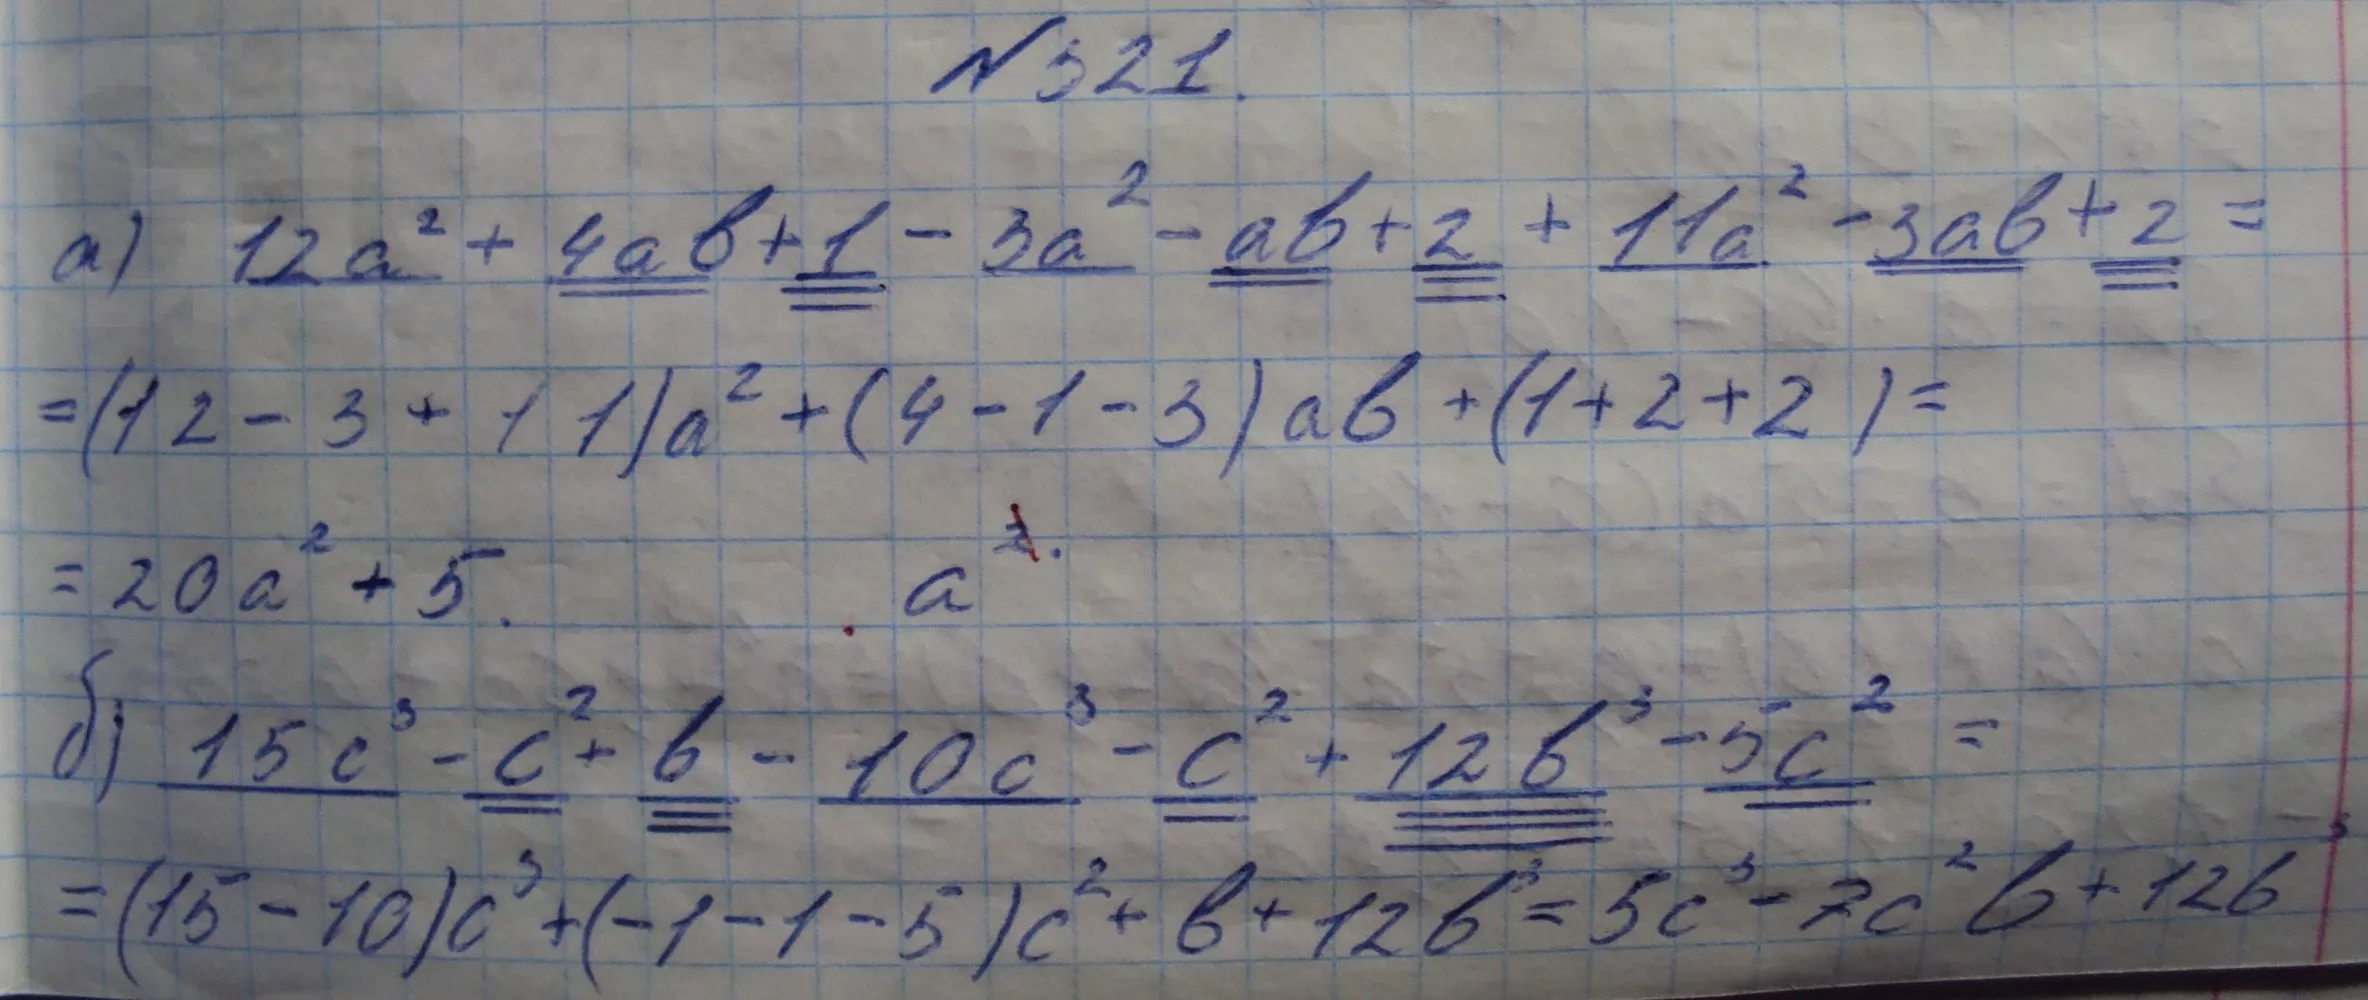 №321.
а) 12a² + 4ab + 1 - 3a² - ab + 2 + 11a² - 3ab + 2 =
= (12 - 3 + 11)a² + (4 - 1 - 3)ab + (1 + 2 + 2) =
= 20a² + 5. a².
б) 15c³ - c² + b - 10c³ - c² + 12b³ - 5c² =
= (15 - 10)c³ + (-1 - 1 - 5)c² + b + 12b³ = 5c³ - 7c² b + 12b³